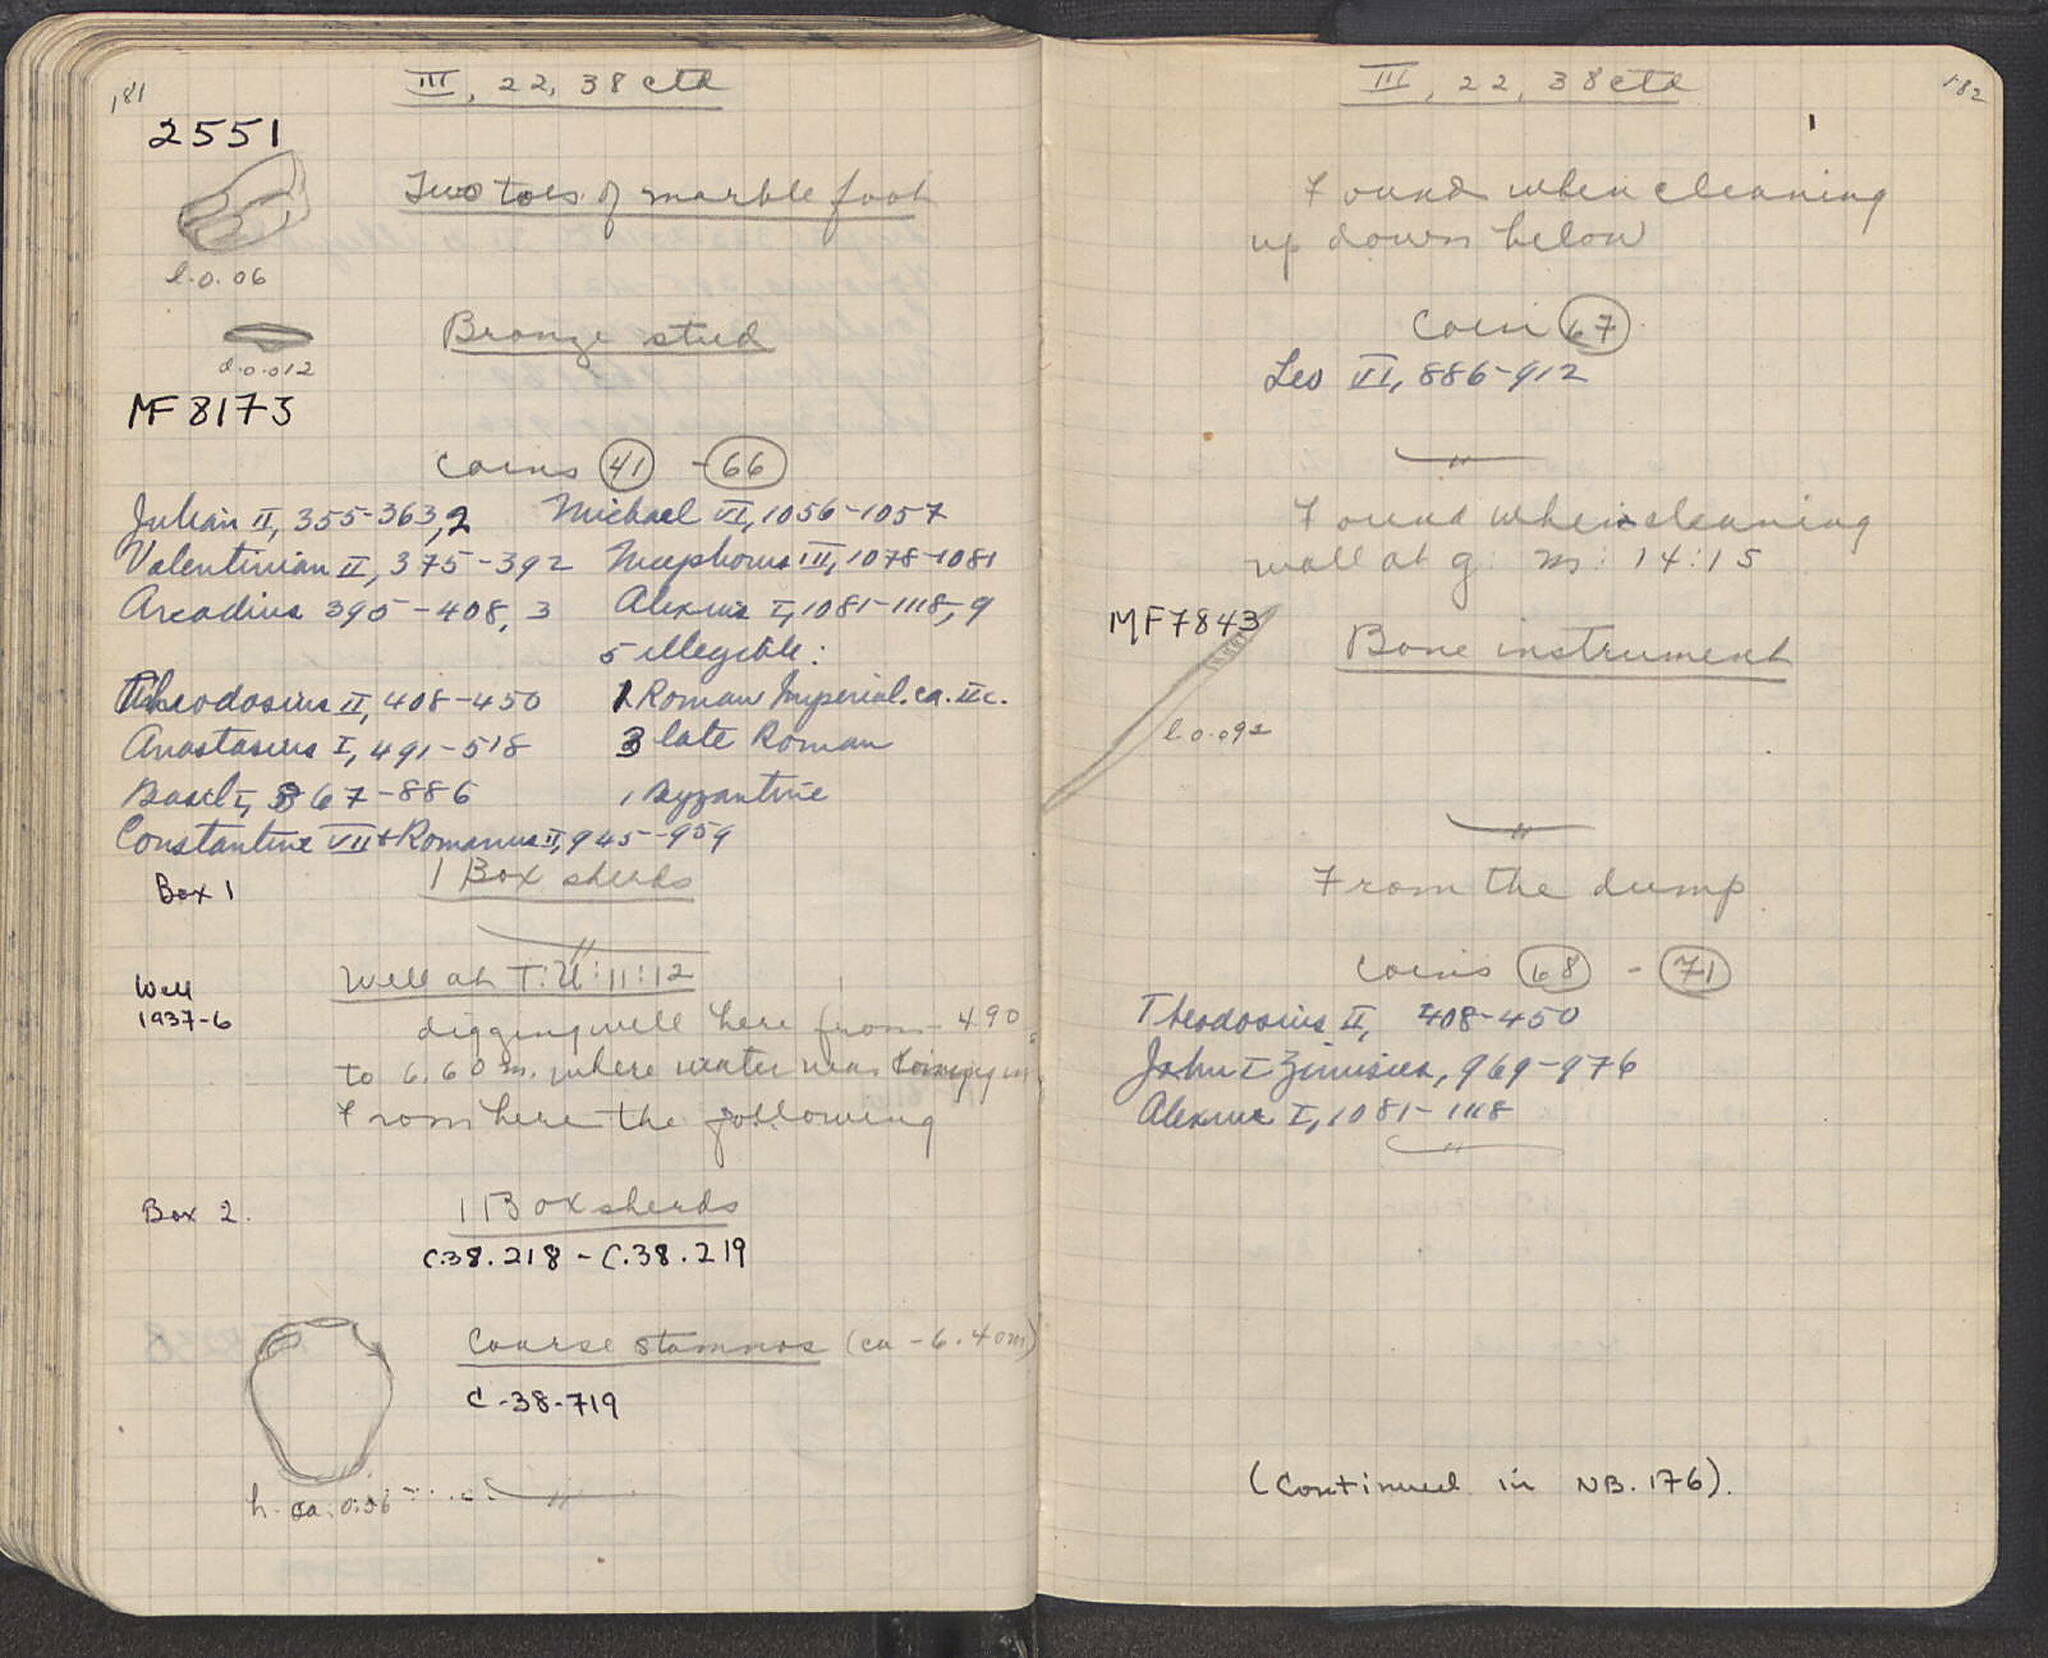 181
III, 22, 38 ctd
2551
Two toes of marble foot
l.0.06
Bronze stud
d.0.012
MF 8173
Coins 41 - 66
Julian II, 355-363, 2
Valentinian II, 375-392
Arcadius 395-408, 3
Theodosius II, 408-450
Anastasius I, 491-518
Basil I, 867-886
Constantine VII + Romanus II, 945-959
Michael VI, 1056-1057
Nicephorus III, 1078-1081
Alexius I, 1081-1118, 9
5 illegible:
1 Roman Imperial. ca. III c.
3 late Roman
1 Byzantine
Box 1
1 Box sherds
Well at T:U:11:12
Well
1937-6
digging well here from - 4.90
to 6.60 m. where water was coming in
From here the following
Box 2.
1 Box sherds
C.38.218 - C.38.219
Coarse stamnos (ca - 6.40m)
C-38-719
h. ca. 0.36
182
III, 22, 38 ctd
Found when cleaning
up down below
Coin 67
Leo VI, 886-912
Found when cleaning
wall at g: m: 14:15
MF7843
Bone instrument
l.0.092
From the dump
Coins 68 - 71
Theodosius II, 408-450
John I Zimisces, 969-976
Alexius I, 1081-1118
(Continued in NB. 176).